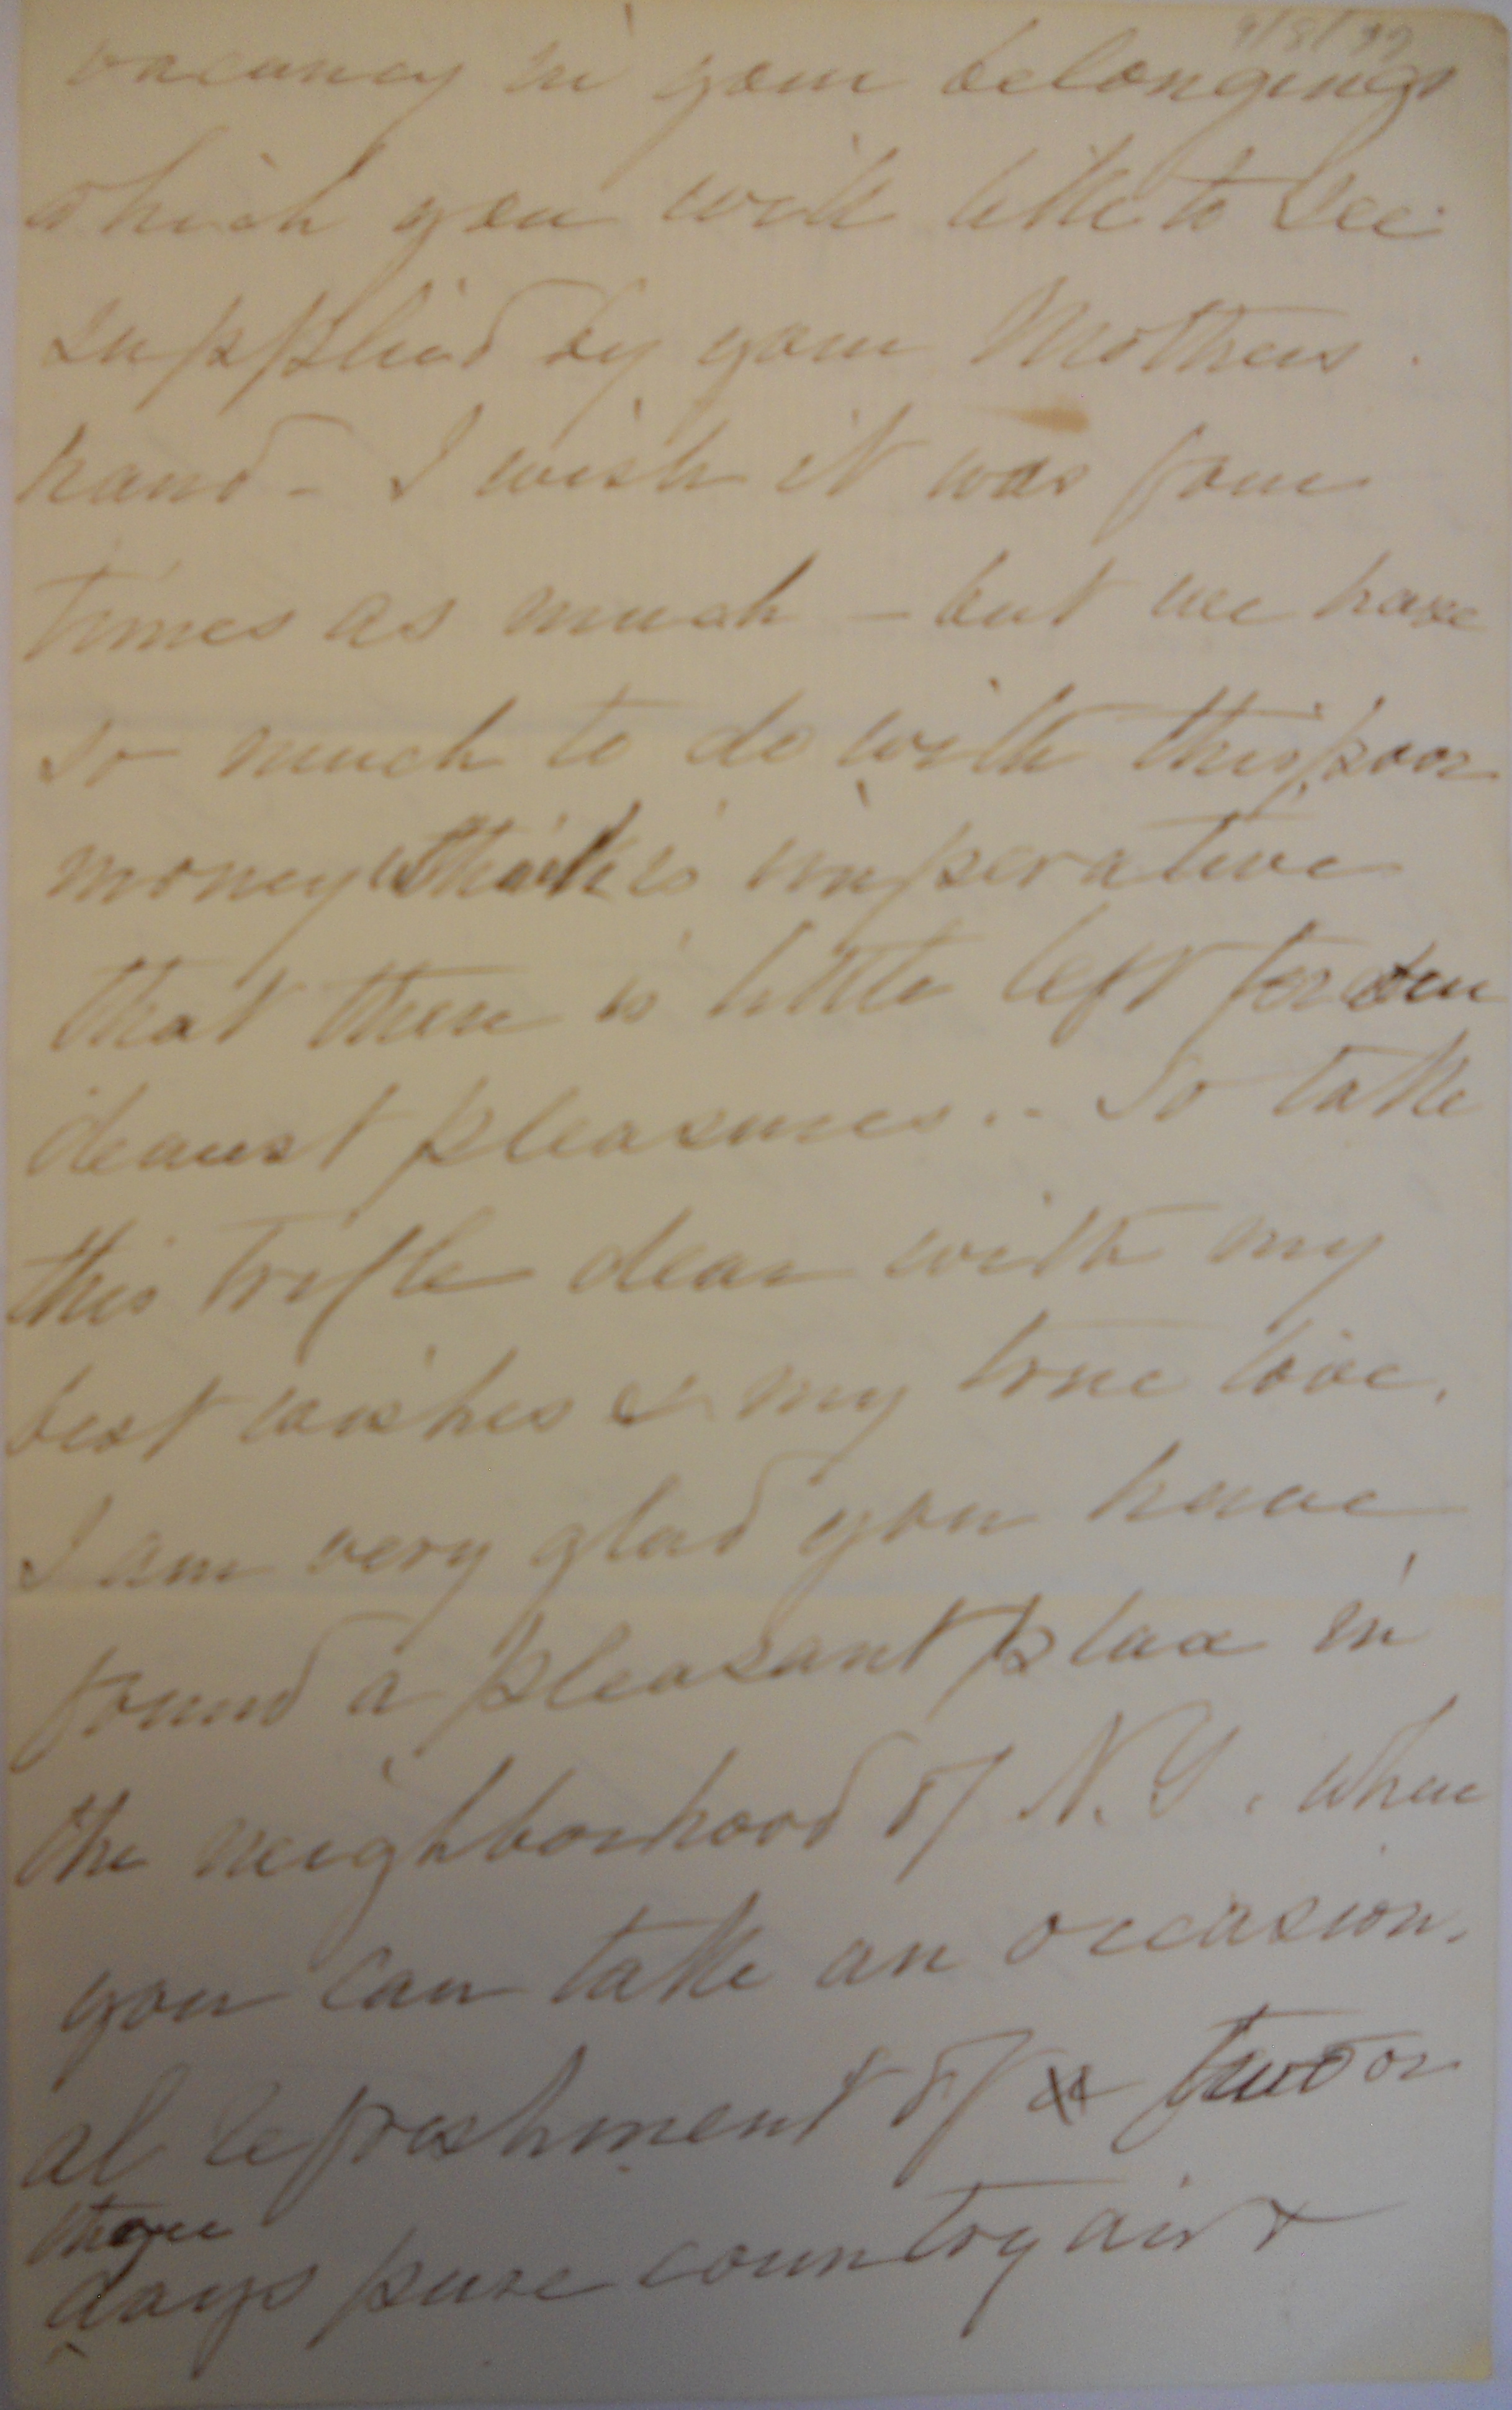 9/8/99
vacancy in your belongings
which you will like to see
supplied by your Mothers
hand - I wish it was four
times as much - but we have
so much to do with this poor
money that is imperative
that there is little left for our
dearest pleasures. - So take
this trifle dear with my
best wishes & my true love.
I am very glad you have
found a pleasant place in
the neighborhood of N.Y. where
you can take an occasion-
al refreshment of a two or
three
days pure country air &